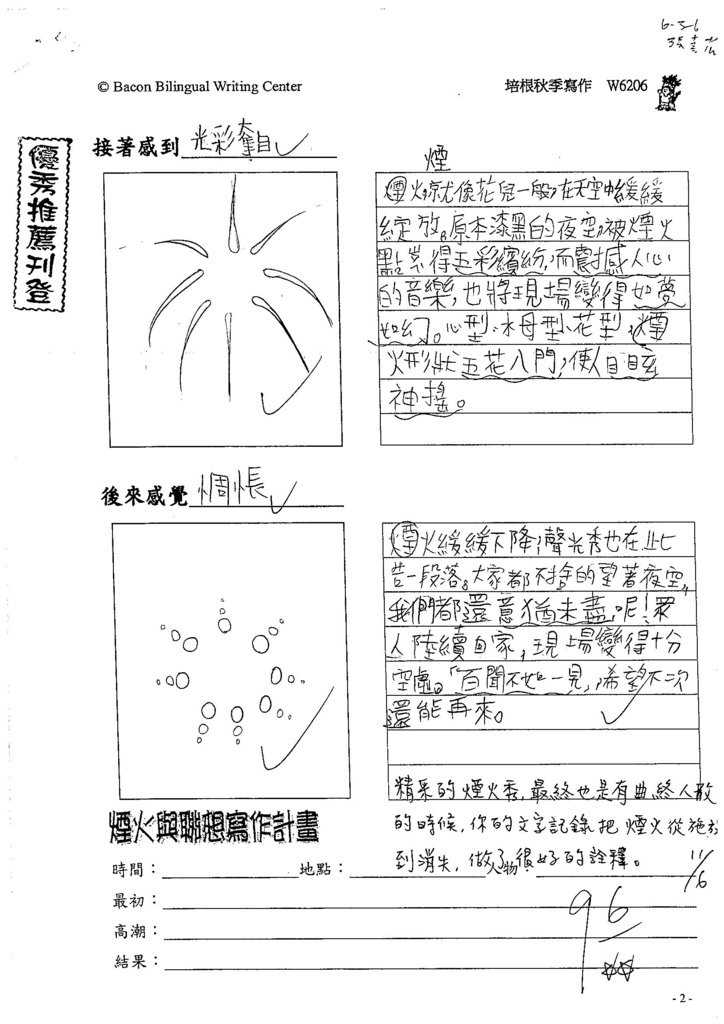 6-3-6
© Bacon Bilingual Writing Center
培根秋季寫作 W6206
優秀推薦刊登
接著感到 光彩奪目
煙
煙火就像花兒一般,在天空中緩緩
綻放。原本漆黑的夜空,被煙火
點綴得五彩繽紛,而震撼人心
的音樂,也將現場變得如夢
如幻。心型、水母型、花型,煙
火形狀五花八門,使人目眩
神搖。
後來感覺 惆悵
煙火緩緩下降,聲光秀也在此
告一段落。大家都不捨的望著夜空,
我們都還意猶未盡呢!眾
人陸續回家,現場變得十分
空虛。「百聞不如一見」,希望下次
還能再來。
精采的煙火秀,最終也是有曲終人散
的時候,你的文字記錄把煙火從施放
到消失,做了很好的詮釋。
11/6
煙火與聯想寫作計畫
時間: 地點: 物:
最初:
高潮:
結果:
96
-2-